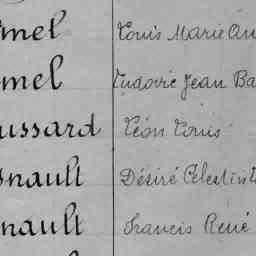 mel Louis Marie Au
mel Ludovic Jean Ba
ussard Léon Louis
nault Désiré Célestin
nault Francis René